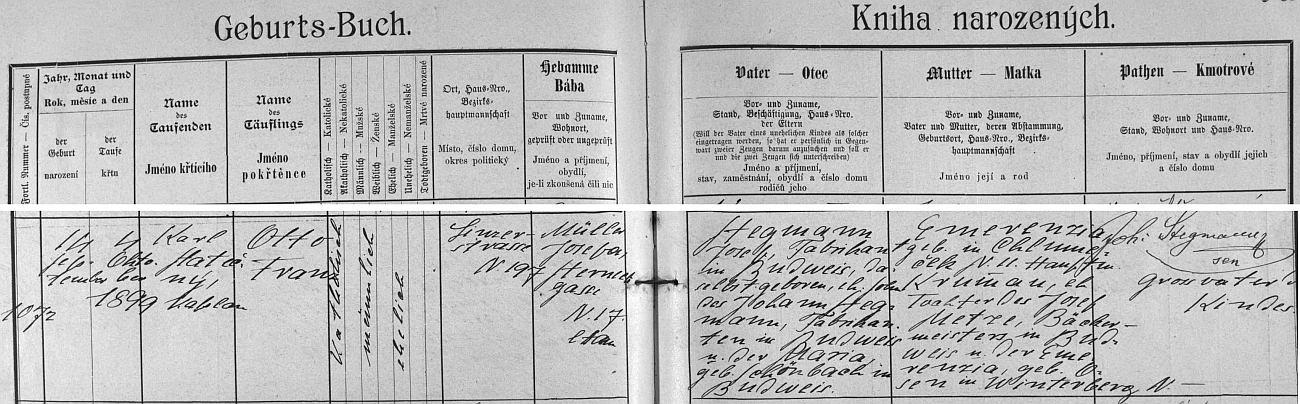 Geburts-Buch.
Kniha narozených.
Fortl. Nummer — Čís. postupné
Jahr, Monat und
Tag
Rok, měsíc a den
der
Geburt
narození
der
Taufe
křtu
Name
des
Taufenden
Jméno křtícího
Name
des
Täuflings
Jméno
pokřtěnce
Katholisch — Katolické
Akatholisch — Nekatolické
Männlich — Mužské
Weiblich — Ženské
Ehelich — Manželské
Unehelich — Nemanželské
Todtgeboren — Mrtvě narozené
Ort, Haus-Nro.,
Bezirks-
hauptmannschaft
Místo, číslo domu,
okres politický
Hebamme
Bába
Vor- und Zuname,
Wohnort,
geprüft oder ungeprüft
Jméno a příjmení,
obydlí,
je-li zkoušená čili nic
Vater — Otec
Vor- und Zuname,
Stand, Beschäftigung, Haus-Nro.
der Eltern
(Will der Vater eines unehelichen Kindes als solcher
eingetragen werden, so hat er persönlich in Gegen-
wart zweier Zeugen darum anzusuchen und soll er
und die zwei Zeugen sich unterschreiben)
Jméno a příjmení,
stav, zaměstnání, obydlí a číslo domu
rodičů jeho
Mutter — Matka
Vor- und Zuname,
Vater und Mutter, deren Abstammung,
Geburtsort, Haus-Nro., Bezirks-
hauptmannschaft
Jméno její a rod
Pathen — Kmotrové
Vor- und Zuname,
Stand, Wohnort und Haus-Nro.
Jméno, příjmení, stav a obydlí jejich
a číslo domu
1072
14
Sep-
tember
4
Okto-
ber
1899
Karl
Matěj-
ný,
Kaplan
Otto
Franz
Katholisch
männlich
ehelich
Linzer-
strasse
N 197
Müller
Josefa,
gasse
N. 17.
Stegmann
Josef, Fabrikant
in Budweis, da-
selbst geboren, eh. Sohn
des Johann Steg-
mann, Fabrikan-
ten in Budweis
u. der Maria,
geb. Schönbach in
Budweis.
Emerenzia
geb. in Chlume-
ček N. 11. Hauptm.
Krumau, eh.
Tochter des Josef
Metze, Bäcker-
meisters in Bud-
weis u. der Eme-
renzia, geb.
sen in Winterberg N. —
Joh. Stegmann
sen
Grossvater d.
Kindes.